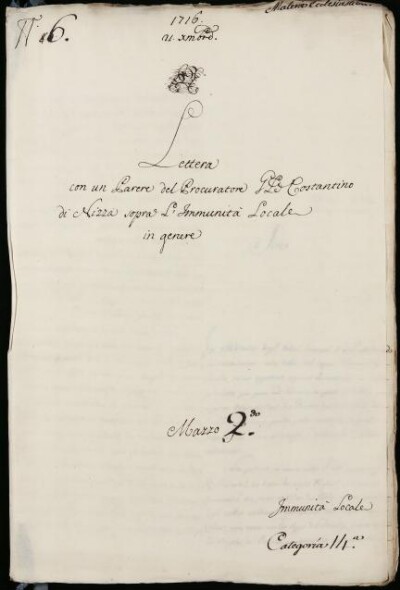 Materie Ecclesiastiche
N.º 16.
1716.
u. xmbrē.
Lettera
con un Parere del Procuratore Gñle Costantino
di Nizza sopra L'Immunità Locale
in genere
Mazzo 2.do
Immunità Locale
Categoria 14.a